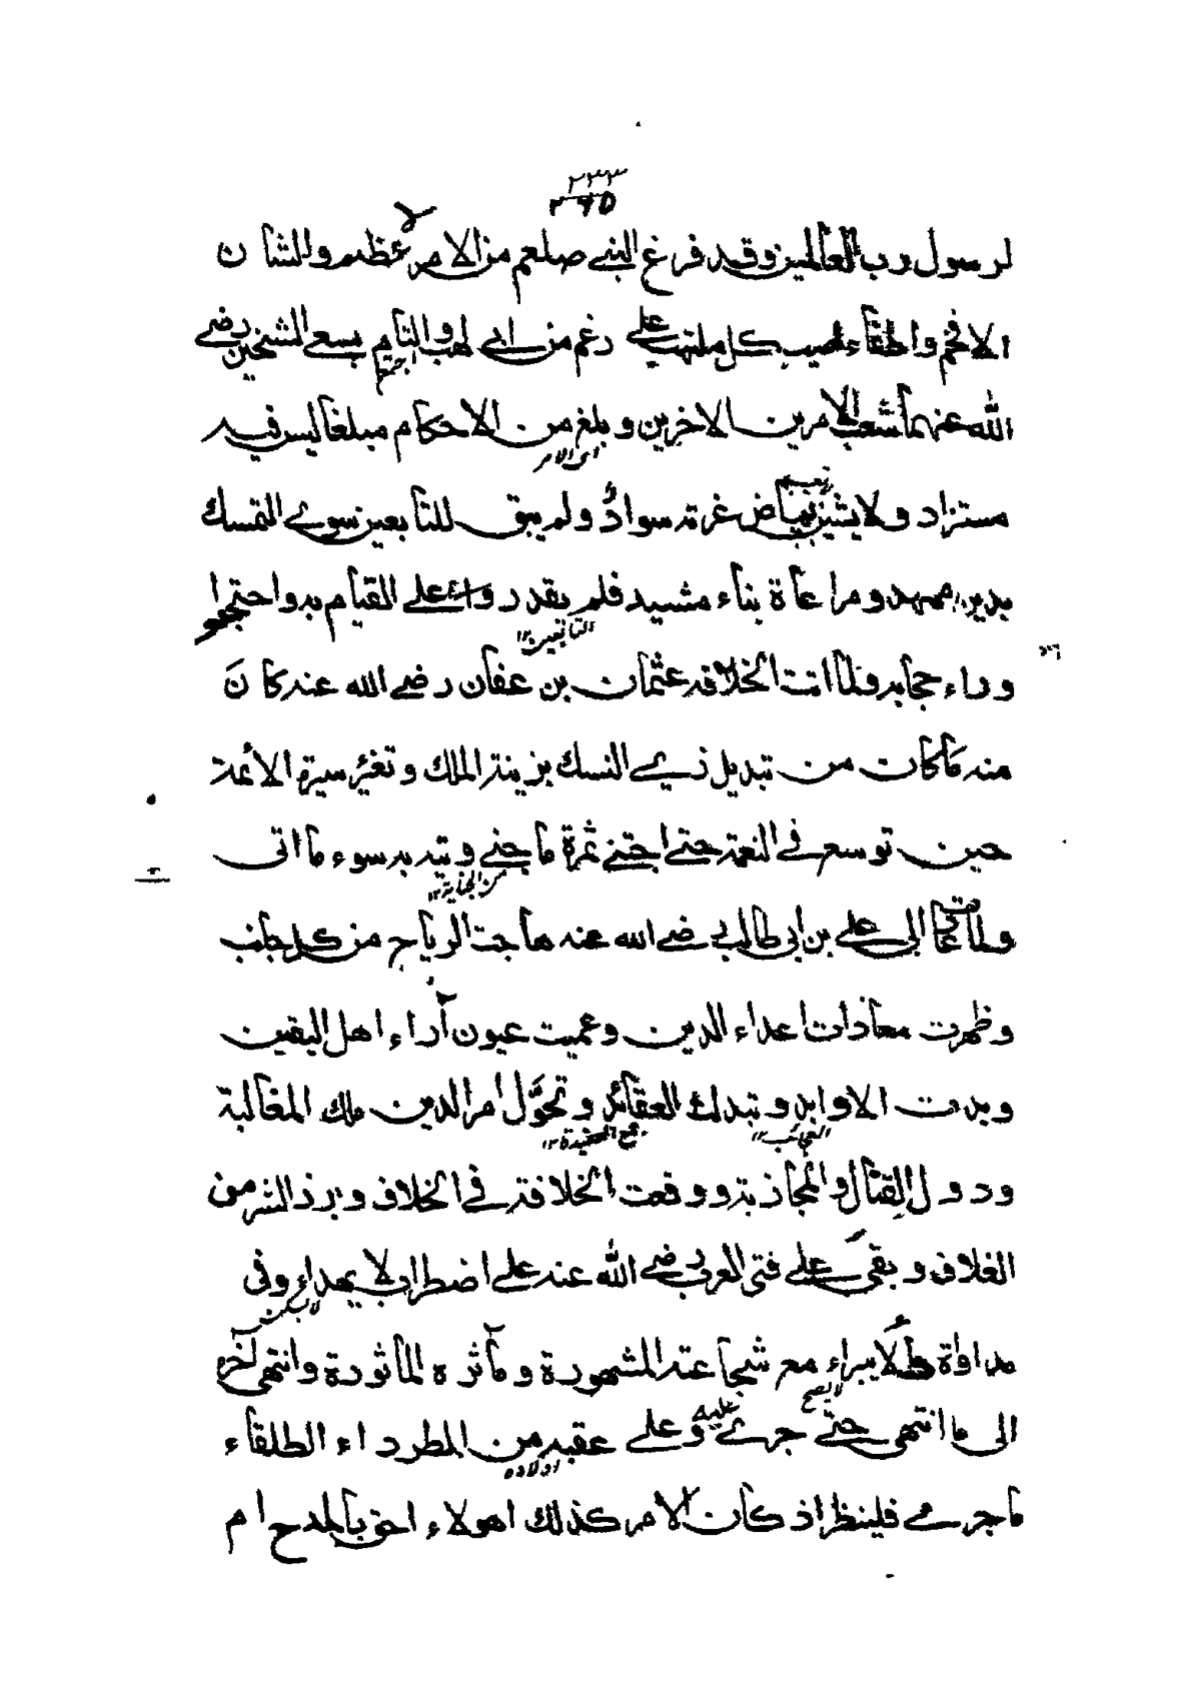 ٢٣٣
٢٦٥
لرسول رب العالمين وقد فرغ النبي صلعم من الامر الاعظم والشان
الافخم واطفاء لهيب كل ملتهب على رغم من ابي لهب والتام بسعي الشيخين رضي
اجتمع
الله عنهما شعب الامرين الاخرين وبلغ من الاحكام مبلغا ليس فيه
اى الامر
مستزاد ولا يشين بياض غرته سوادٌ ولم يبق للتابعين سوى التمسك
بدين ممهد ومراعاة بناء مشيد فلم يقدروا على القيام به واحتجبوا
التابعين ١٢
وراء حجابه ولما اتت الخلافة عثمان بن عفان رضي الله عنه كانَ
منه ما كانت من تبديل زي النسك بزينة الملك وتغير سيرة الأئمة
حين توسع في النعمة حتى اجتنى ثمرة ما جنى وتبد به سوء ما اتى
من الجناية ١٢
ولما الى علي بن ابي طالب رضي الله عنه هاجت الرياح من كل جانب
وظهرت معادات اعداء الدين وعميت عيون آراء اهل اليقين
وبدت الاوابد وتبدلت العقائد وتحوَّل امر الدين ملك المغالبة
العجائب ١٢
جمع العقيدة ١٢
ودول القتال والمجاذبة ووقعت الخلافة في الخلاف وبرز الشر من
الغلاف وبقى على فتى العرب رضي الله عنه على اضطراب لا يهداء وفى
لا يسكن
مداواة لا يبراء مع شجاعته المشهورة ومآثره المأثورة وانتهى آخره
لا يصح
الى ما انتهى حتى جرى عليه وعلى عقبه من المطرداء الطلقاء
اولاده
ما جرى فلينظر اذ كان الامر كذلك اهولاء احق بالمدح ام